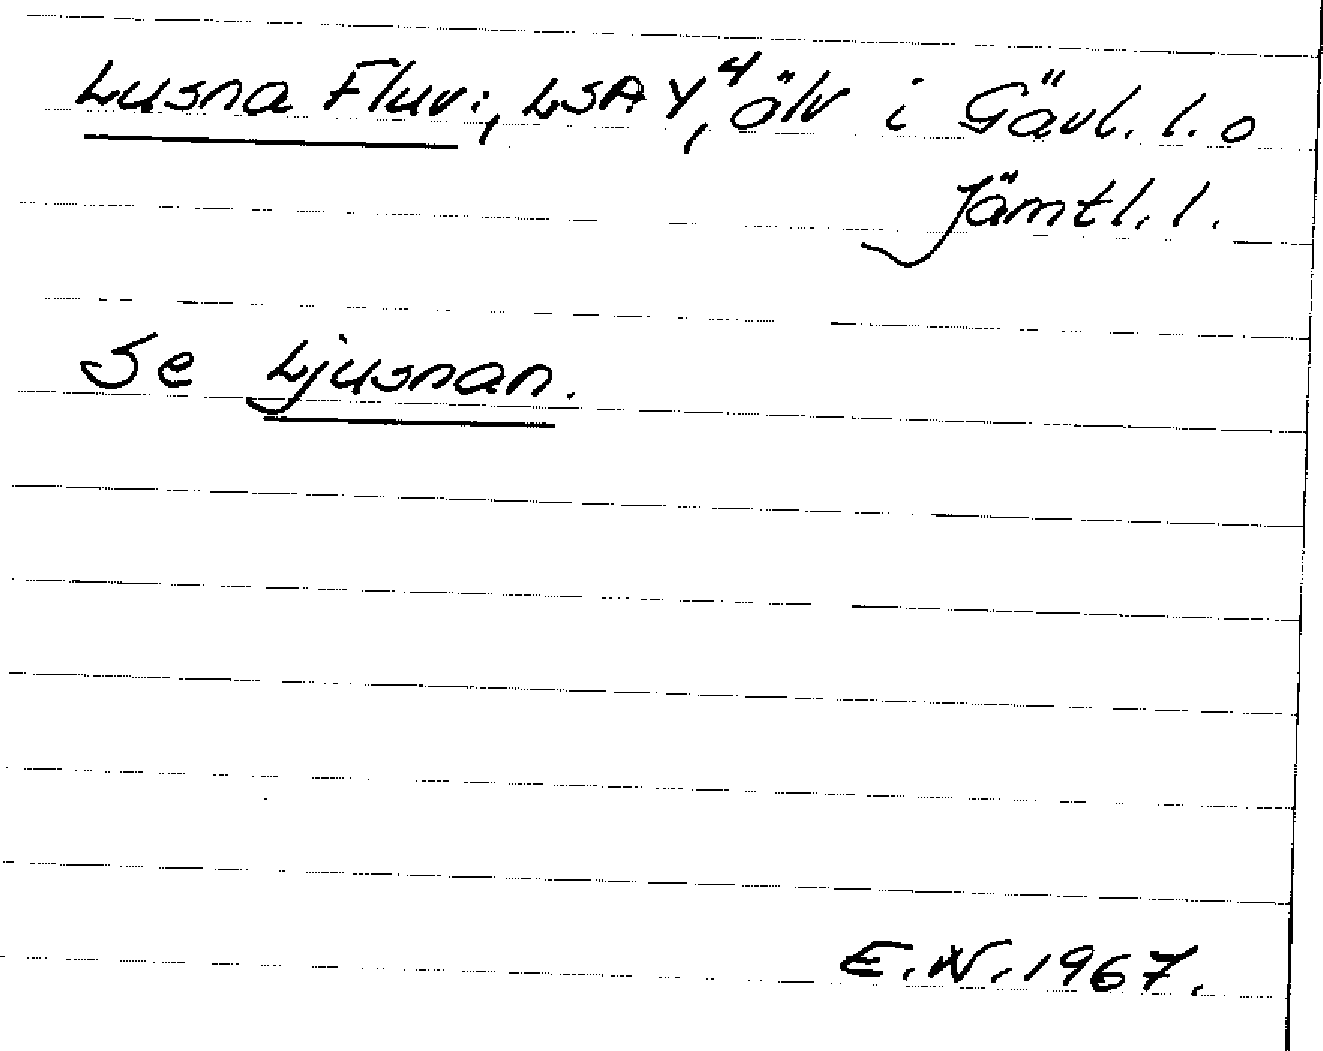 Lusna Fluv:, LSA Y⁴, älv i Gävl. l. o
Jämtl. l.
Se Ljusnan.
E.N. 1967.